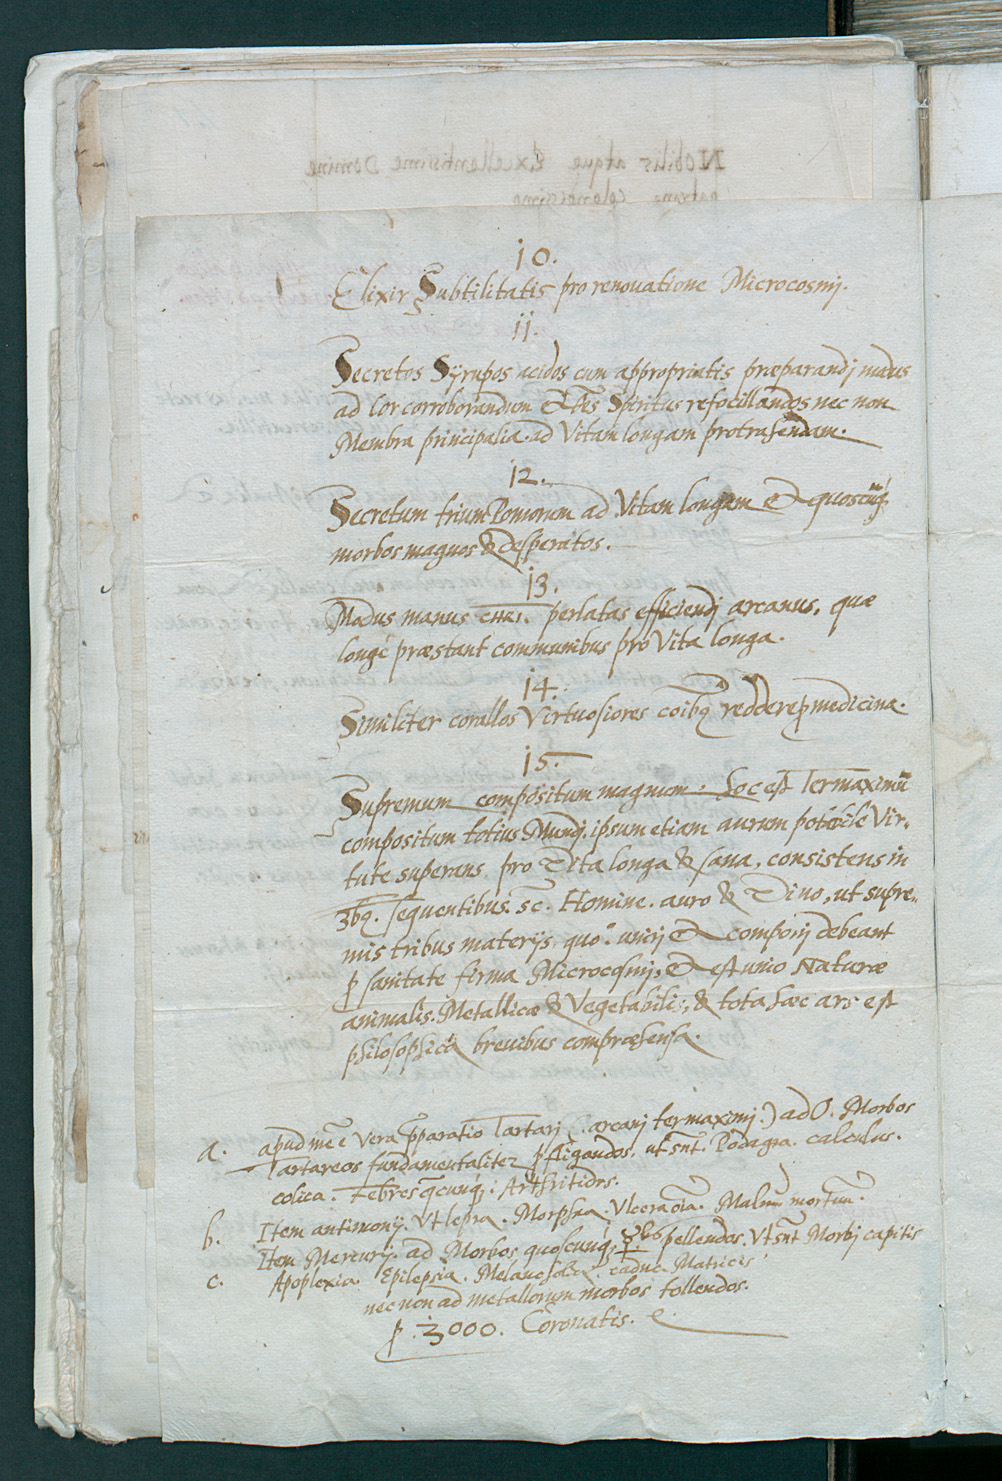 10.
Elixir Subtilitatis pro renovatione Microcosmj.
11.
Secretos Syrupos acidos cum appropriatis præparandj modus
ad Cor corroborandum & Spiritus refocillandos nec non
Membra principalia. ad Vitam longam protrahendam.
12.
Secretum trium Pomorum ad Vitam longam Et quoscūq₃
morbos magnos & desperatos.
13.
Modus manus CHRI. perlatas efficiendj arcanus, quæ
longè præstant communibus pro Vita longa.
14.
Similiter corallos Virtuosiores cōibq₃ reddere p medicina.
15.
Supremum compositum magnum. hoc est Termaximū
compositum totius Mundj. ipsum etiam aurum potabile Vir-
tute superans pro Vita longa & sana, consistens in
3bq₃. sequentibus. sc. Homine. auro & Vino, ut supre-
mis tribus materijs, quō. unirj Et componj debeant
p sanitate firma Microcosmj, Et est unio Naturæ
animalis. Metallicæ & Vegetabilis, & tota hæc ars est
philosophica brevibus compræhensa.
a. apud me ē vera p̄paratio Tartarj (. arcanj termaximj.) ad O. Morbos
Tartareos fundamentaliter p̄fligandos. ut snt. Podagra. calculus.
colica. Febres q̄cunq₃. Arthritides.
b. Item antimonij. Vt lepra. Morphea. Vlcera oīa. Malum mortuū.
c. Item Mercurij. ad Morbos quoscunq₃ pellendos. Vt snt Morbj capitis
Apoplexia. Epilepsia. Melancholia. caduc. Matricis
nec non ad metallorum morbos tollendos.
p. 3000. Coronatis.